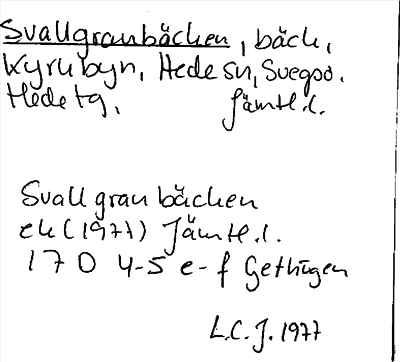 Svallgranbäcken, bäck,
Kyrkbyn, Hede sn, Svegsd.
Hede tg, Jämtl. l.
Svallgranbäcken
ek (1977) Jämtl. l.
17D 4-5 e-f Gethågen
L.C.J. 1977